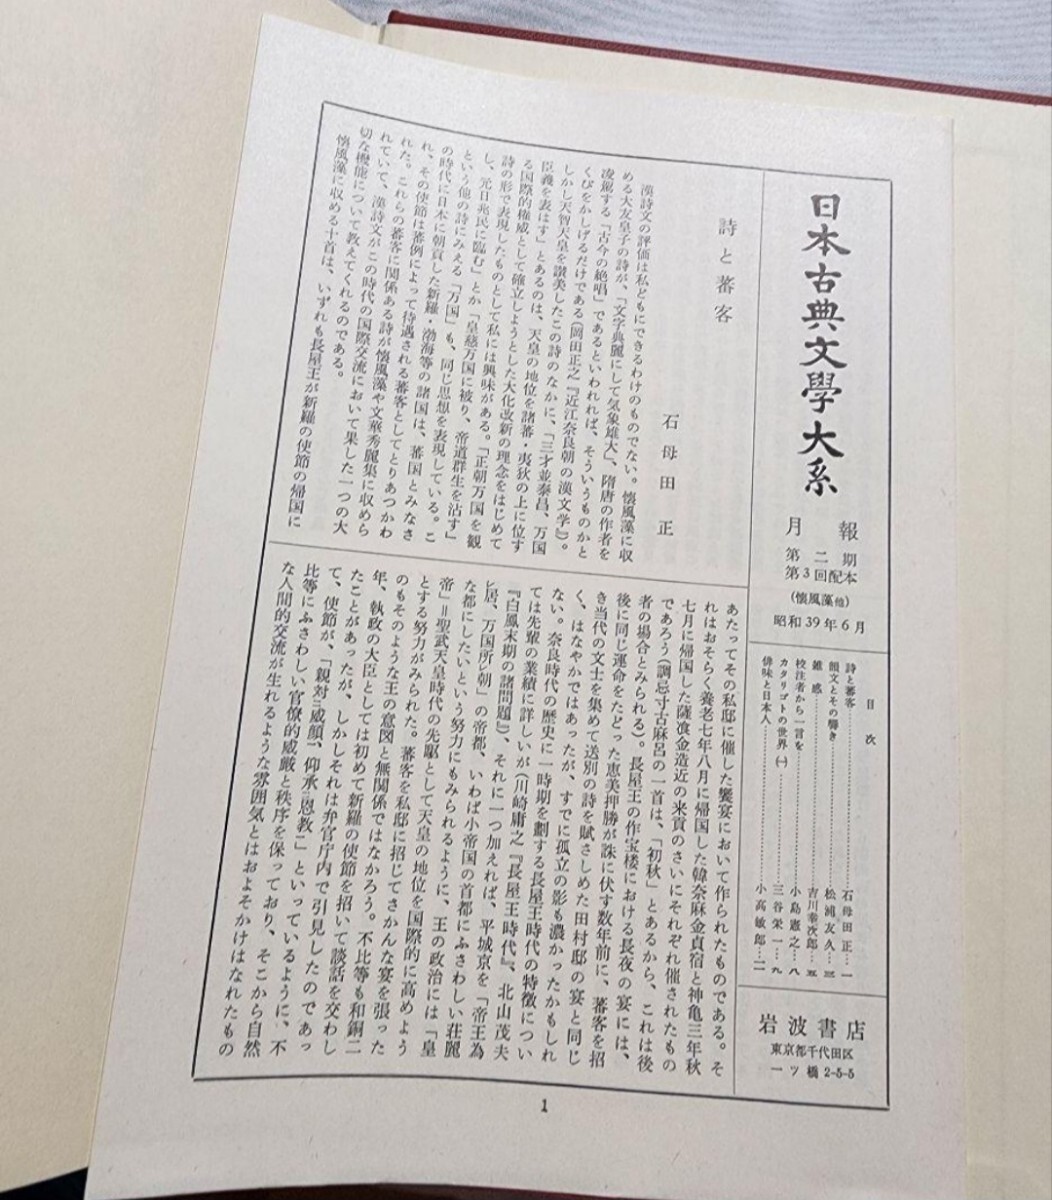 日本古典文學大系
月報
第二期
第3回配本
(懐風藻他)
昭和39年6月
目次
詩と蕃客……石母田正…一
願文とその響き……松浦友久…三
雑感……吉川幸次郎…五
校注者から一言を……小島憲之…八
カタリゴトの世界㈠……三谷栄一…九
俳味と日本人……小高敏郎…二
岩波書店
東京都千代田区
一ツ橋2-5-5
詩と蕃客
石母田正
漢詩文の評価は私どもにできるわけのものでない。懐風藻に収
める大友皇子の詩が、「文字典麗にして気象雄大」、隋唐の作者を
凌駕する「古今の絶唱」であるといわれれば、そういうものかと
くびをかしげるだけである(岡田正之『近江奈良朝の漢文学』)。
しかし天智天皇を讃美したこの詩のなかに、「三才並泰昌、万国
臣義を表はす」とあるのは、天皇の地位を諸蕃・夷狄の上に位す
る国際的権威として確立しようとした大化改新の理念をはじめて
詩の形で表現したものとして私には興味がある。「正朝万国を観
し、元日兆民に臨む」とか「皇慈万国に被り、帝道群生を沾す」
という他の詩にみえる「万国」も、同じ思想を表現している。こ
の時代に日本に朝貢した新羅・渤海等の諸国は、蕃国とみなさ
れ、その使節は蕃例によって待遇される蕃客としてとりあつかわ
れた。これらの蕃客に関係ある詩が懐風藻や文華秀麗集に収めら
れていて、漢詩文がこの時代の国際交流において果した一つの大
切な機能について教えてくれるのである。
懐風藻に収める十首は、いずれも長屋王が新羅の使節の帰国に
あたってその私邸に催した饗宴において作られたものである。そ
れはおそらく養老七年八月に帰国した韓奈麻金貞宿と神亀三年秋
七月に帰国した薩飡金造近の来貢のさいにそれぞれ催されたもの
であろう(調忌寸古麻呂の一首は、「初秋」とあるから、これは後
者の場合とみられる)。長屋王の作宝楼における長夜の宴には、
後に同じ運命をたどった恵美押勝が誅に伏す数年前に、蕃客を招
き当代の文士を集めて送別の詩を賦さしめた田村邸の宴と同じ
く、はなやかではあったが、すでに孤立の影も濃かったかもしれ
ない。奈良時代の歴史に一時期を劃する長屋王時代の特徴につい
ては先輩の業績に詳しいが(川崎庸之『長屋王時代』、北山茂夫
『白鳳末期の諸問題』)、それに一つ加えれば、平城京を「帝王為
レ居、万国所レ朝」の帝都、いわば小帝国の首都にふさわしい荘麗
な都にしたいという努力にもみられるように、王の政治には「皇
帝」=聖武天皇時代の先駆として天皇の地位を国際的に高めよう
とする努力がみられた。蕃客を私邸に招じてさかんな宴を張った
のもそのような王の意図と無関係ではなかろう。不比等も和銅二
年、執政の大臣としては初めて新羅の使節を招いて談話を交わし
たことがあったが、しかしそれは弁官庁内で引見したのであっ
て、使節が、「親対二威顔一、仰承二恩教一」といっているように、不
比等にふさわしい官僚的威厳と秩序を保っており、そこから自然
な人間的交流が生れるような雰囲気とはおよそかけはなれたもの
1